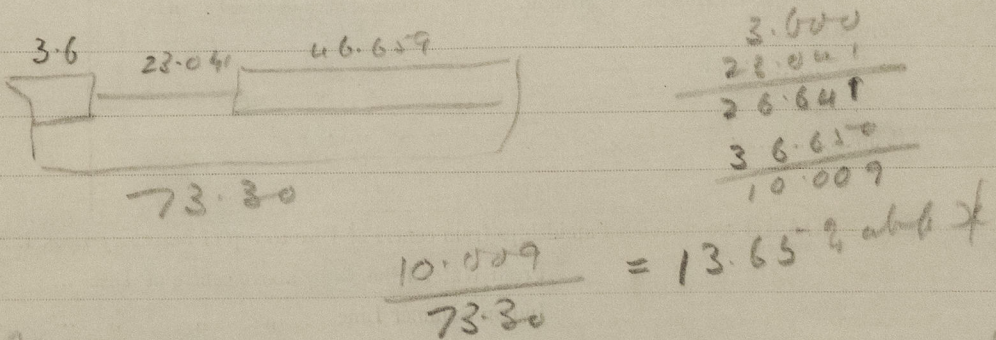 3.6 23.041 46.659
73.30
3.600
23.041
26.641
36.650
10.009
10.009
73.30
= 13.65